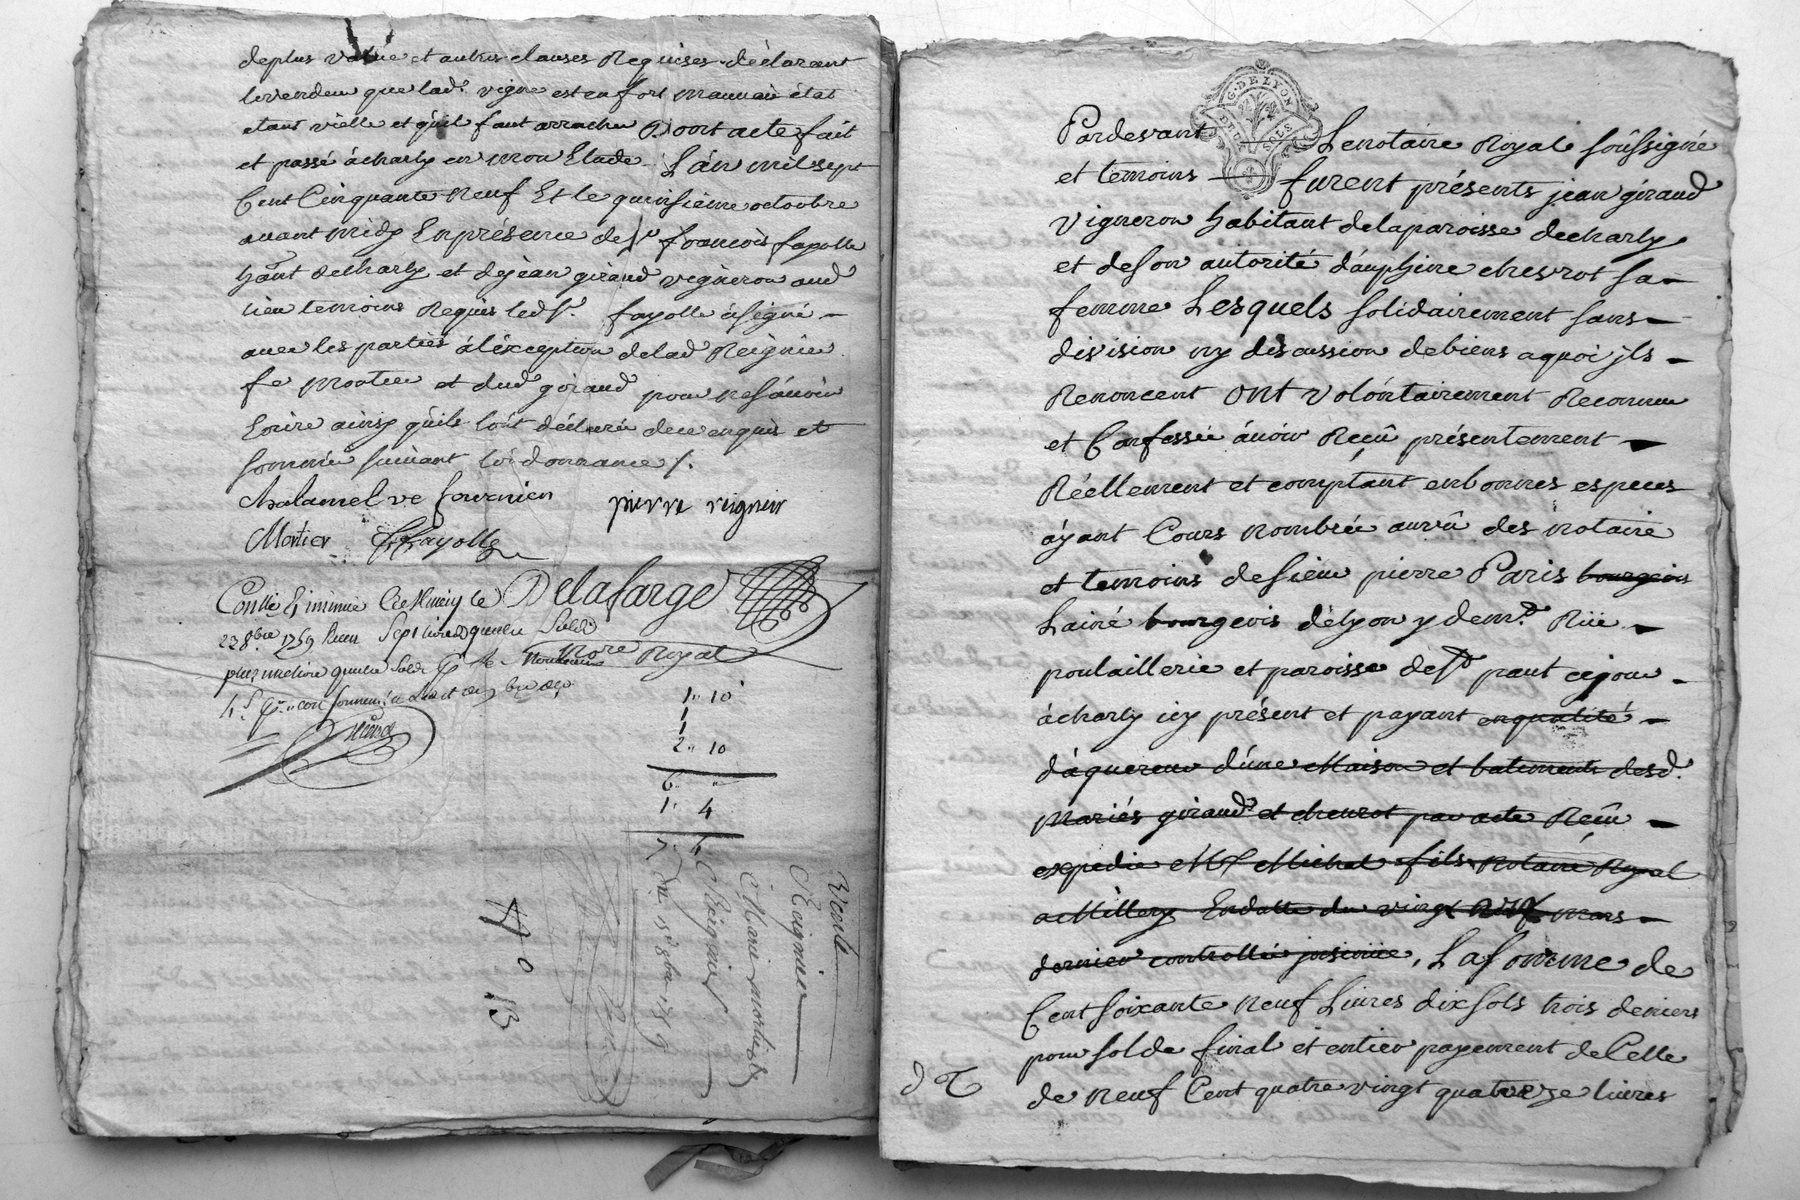 deplus value et autres clauses Requises declarant
levendeur que lad.e vigne est en fort mauvais état
etant vielle et quil faut arracher Dont acte fait
et passé à charly en mon Etude L'an mil sept
Cent Cinquante Neuf Et le quinsieme octoubre
avant midy En présence de Sr françois fayolle
hant de charly et de jean giraud vigneron aud
lieu temoins Requis led Sr. fayolle à signé
avec les parties à l'exception de lad Reignier
fe Mortier et dud giraud pour ne sçavoir
Ecrire ainsy quils l'ont déclaré de ce enquis et
sommé suivant l'ordonnance /.
chalamel ve
pierre reignier
Mortier fayolle
Delafarge
Conllé & insinué à Millery le
22 8bre 1759 Reçu Sept livres quatre sols
Nore Royal
1" 10
1
1
2" 10
6 "
1" 4
7" 4
Vente
Reignier
à Marie mortier
Reignier
Du 15 8bre 1759
40 13
G. DE LYON
Pardevant Le notaire Royal soussigné
et temoins furent présents jean giraud
vigneron habitant de la paroisse de charly
et de son autorité d'auphine chevrot sa
femme Lesquels solidairement sans
division ny discussion de biens a quoi jls
Renoncent ont volontairement Reconnu
et Confessée avoir Reçû présentement
Réellement et comptant en bonnes especes
ayant Cours nombrée au vû des notaire
et temoins de sieur pierre Paris bourgeois
Lainé bourgeois de lyon y demt Rüe
poulaillerie et paroisse de St paul cejour
à charly icy présent et payant en qualité
d'aquereur d'une Maison et batiments desd.
Mariés giraud et chevrot par acte Reçû
expedié Me Michal fils Notaire Royal
a Millery En datte du vingt neuf mars
dernier controllé insinüé, La somme de
Cent soixante neuf Livres dix sols trois deniers
pour solde final et entier payement de Celle
de neuf Cent quatre vingt quatorze livres